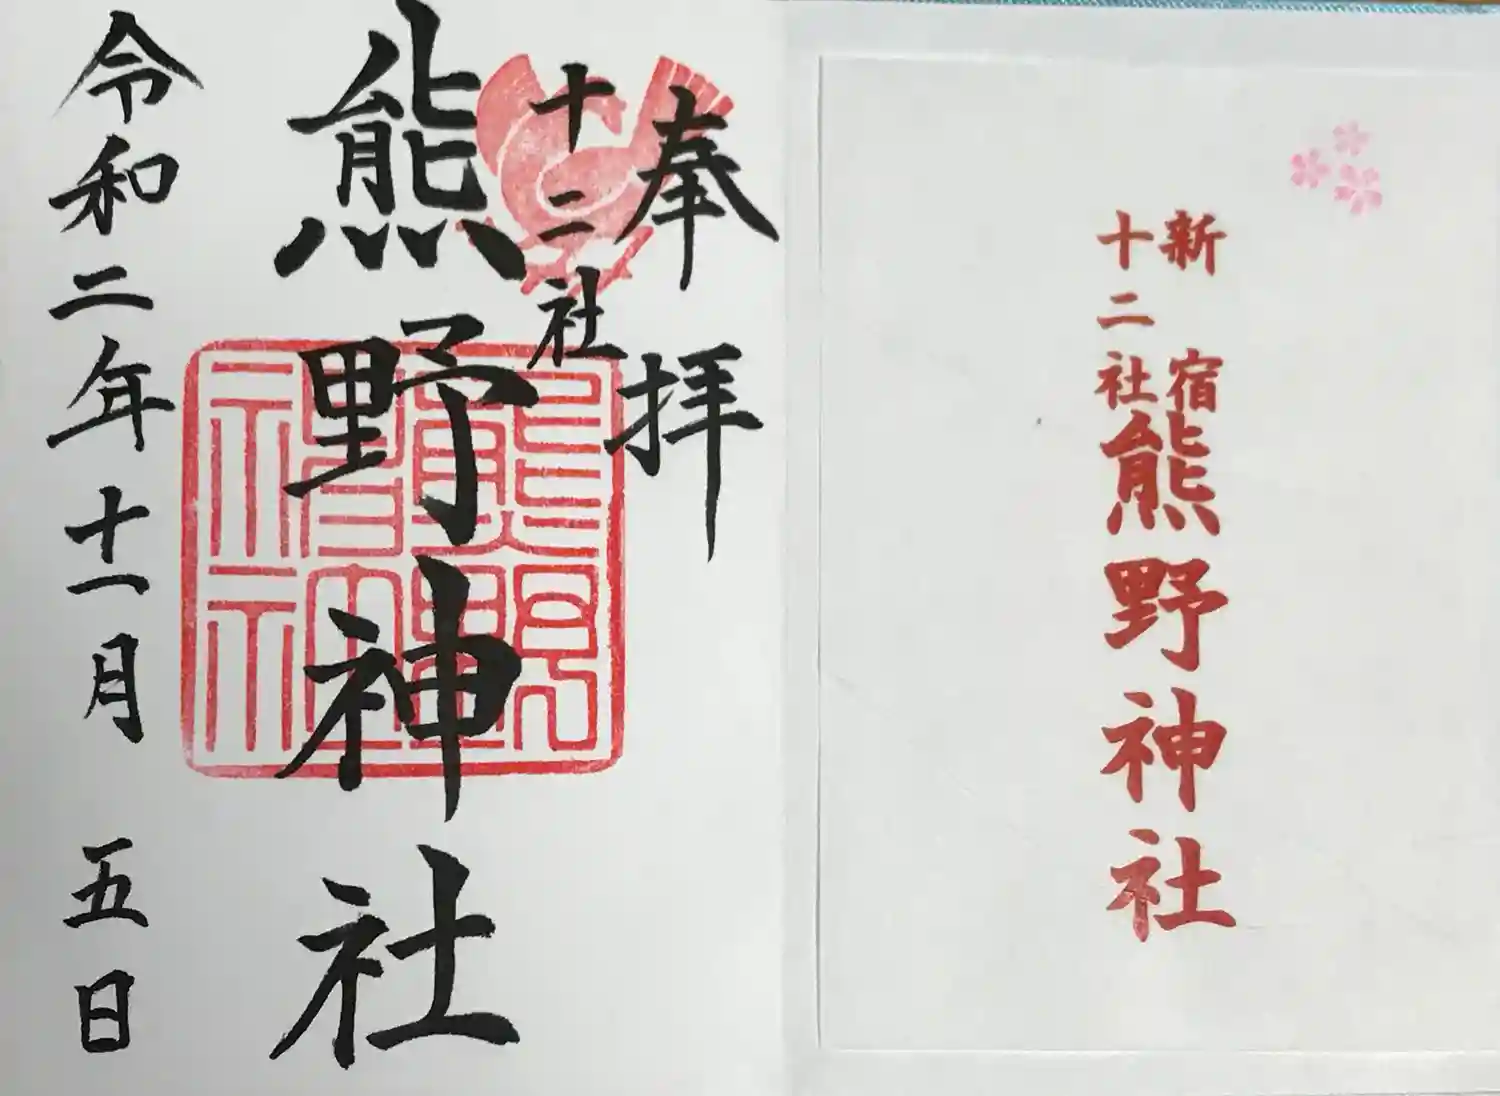 新宿
十二社
熊野神社
奉拝
十二社
熊野神社
令和二年十一月五日